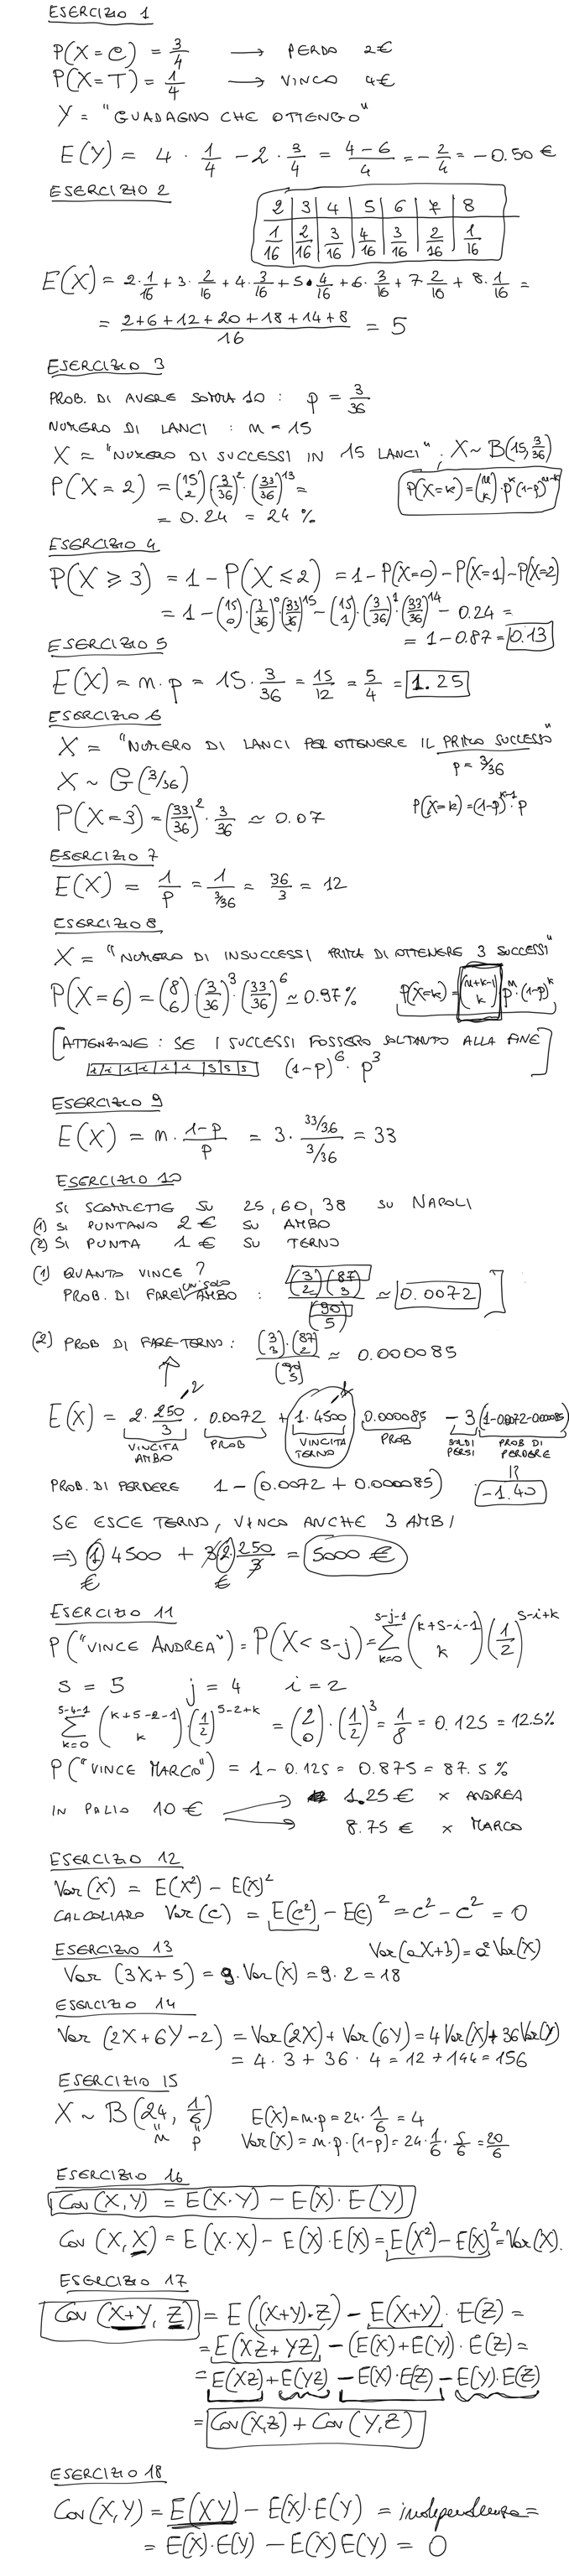 ESERCIZIO 1
P(X=C) = 3/4 → PERDO 2€
P(X=T) = 1/4 → VINCO 4€
Y = "GUADAGNO CHE OTTENGO"
E(Y) = 4 · 1/4 - 2 · 3/4 = (4-6)/4 = -2/4 = -0.50 €
ESERCIZIO 2
2 | 3 | 4 | 5 | 6 | 7 | 8
1/16 | 2/16 | 3/16 | 4/16 | 3/16 | 2/16 | 1/16
E(X) = 2·1/16 + 3·2/16 + 4·3/16 + 5·4/16 + 6·3/16 + 7·2/16 + 8·1/16 =
= (2+6+12+20+18+14+8)/16 = 5
ESERCIZIO 3
PROB. DI AVERE SOPRA 10 : p = 3/36
NUMERO DI LANCI : n = 15
X = "NUMERO DI SUCCESSI IN 15 LANCI" ; X ~ B(15, 3/36)
P(X=2) = (15 2)(3/36)²·(33/36)¹³ =
P(X=k) = (n k)·p^k (1-p)^(n-k)
= 0.24 = 24 %
ESERCIZIO 4
P(X ≥ 3) = 1 - P(X ≤ 2) = 1 - P(X=0) - P(X=1) - P(X=2)
= 1 - (15 0)·(3/36)⁰·(33/36)¹⁵ - (15 1)·(3/36)¹·(33/36)¹⁴ - 0.24 =
= 1 - 0.87 = 0.13
ESERCIZIO 5
E(X) = n · p = 15 · 3/36 = 15/12 = 5/4 = 1.25
ESERCIZIO 6
X = "NUMERO DI LANCI PER OTTENERE IL PRIMO SUCCESSO"
p = 3/36
X ~ G(3/36)
P(X=3) = (33/36)² · 3/36 ≃ 0.07
P(X=k) = (1-p)^(k-1) · p
ESERCIZIO 7
E(X) = 1/p = 1/(3/36) = 36/3 = 12
ESERCIZIO 8
X = "NUMERO DI INSUCCESSI PRIMA DI OTTENERE 3 SUCCESSI"
P(X=6) = (8 6)·(3/36)³·(33/36)⁶ ≃ 0.97%
P(X=k) = (n+k-1 k) p^n · (1-p)^k
[ATTENZIONE : SE I SUCCESSI FOSSERO SOLTANTO ALLA FINE
i i i i i i S S S (1-p)⁶ · p³ ]
ESERCIZIO 9
E(X) = n · (1-p)/p = 3 · (33/36)/(3/36) = 33
ESERCIZIO 10
SI SCOMMETTE SU 25, 60, 38 SU NAPOLI
(1) SI PUNTANO 2 € SU AMBO
(2) SI PUNTA 1 € SU TERNO
(1) QUANTO VINCE ?
PROB. DI FARE UN SOLO AMBO : (3 2)(87 3)/(90 5) ≃ 0.0072 ]
(2) PROB DI FARE TERNO : (3 3)·(87 2)/(90 5) ≃ 0.000085
E(X) = 2·250/3 · 0.0072 + 1·4500 · 0.000085 - 3(1-0.0072-0.000085)
VINCITA AMBO PROB VINCITA TERNO PROB SOLDI PERSI PROB DI PERDERE
PROB. DI PERDERE 1 - (0.0072 + 0.000085)
= -1.40
SE ESCE TERNO, VINCO ANCHE 3 AMBI
⇒ 1 4500 + 3·2·250/3 = 5000 €
€ €
ESERCIZIO 11
P("VINCE ANDREA") = P(X < s-j) = Σ k=0 s-j-1 (k+s-i-1 k)(1/2)^(s-i+k)
s = 5 j = 4 i = 2
Σ k=0 5-4-1 (k+5-2-1 k)·(1/2)^(5-2+k) = (2 0)·(1/2)³ = 1/8 = 0.125 = 12.5%
P("VINCE MARCO") = 1 - 0.125 = 0.875 = 87.5 %
IN PALIO 10 € → 1.25 € x ANDREA
→ 8.75 € x MARCO
ESERCIZIO 12
Var(X) = E(X²) - E(X)²
CALCOLIAMO Var(c) = E(c²) - E(c)² = c² - c² = 0
ESERCIZIO 13
Var(aX+b) = a² Var(X)
Var(3X+5) = 9·Var(X) = 9·2 = 18
ESERCIZIO 14
Var(2X+6Y-2) = Var(2X) + Var(6Y) = 4Var(X) + 36Var(Y)
= 4 · 3 + 36 · 4 = 12 + 144 = 156
ESERCIZIO 15
X ~ B(24, 1/6) E(X) = n·p = 24 · 1/6 = 4
n p Var(X) = n·p·(1-p) = 24 · 1/6 · 5/6 = 20/6
ESERCIZIO 16
Cov(X,Y) = E(X·Y) - E(X)·E(Y)
Cov(X,X) = E(X·X) - E(X)·E(X) = E(X²) - E(X)² = Var(X).
ESERCIZIO 17
Cov(X+Y, Z) = E((X+Y)·Z) - E(X+Y)·E(Z) =
= E(XZ+YZ) - (E(X)+E(Y))·E(Z) =
= E(XZ) + E(YZ) - E(X)·E(Z) - E(Y)·E(Z)
= Cov(X,Z) + Cov(Y,Z)
ESERCIZIO 18
Cov(X,Y) = E(XY) - E(X)·E(Y) = independenza =
= E(X)·E(Y) - E(X)E(Y) = 0